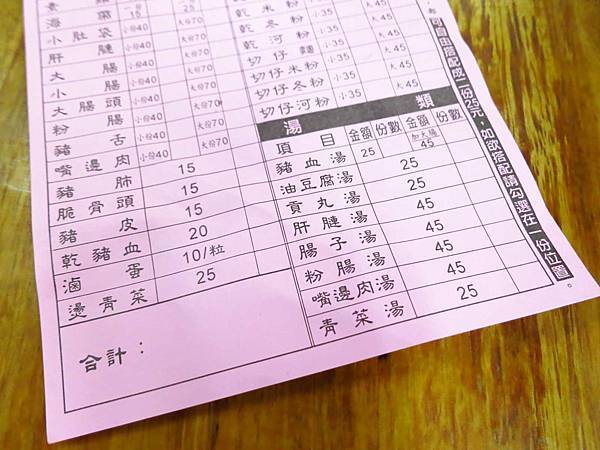 海 15 25
小肚 小份40 大份70
肝腱 小份40 大份70
大腸 小份40 大份70
小腸 小份40 大份70
大腸頭 小份40 大份70
粉腸 小份40 大份70
豬舌 小份40 大份70
嘴邊肉 小份40 大份70
豬肺 15
脆骨頭 15
豬皮 15
乾豬血 20
滷蛋 10/粒
燙青菜 25
合計：
乾米粉 小35 大45
乾冬粉 小35 大45
乾河粉 小35 大45
切仔麵 小35 大45
切仔米粉 小35 大45
切仔冬粉 小35 大45
切仔河粉 小35 大45
湯類
項目 金額 份數 金額 份數
豬血湯 25 加大腸45
油豆腐湯 25
貢丸湯 25
肝腱湯 45
腸子湯 45
粉腸湯 45
嘴邊肉湯 45
青菜湯 25
可自由搭配成一份25元，如欲搭配請勾選在一份位置。